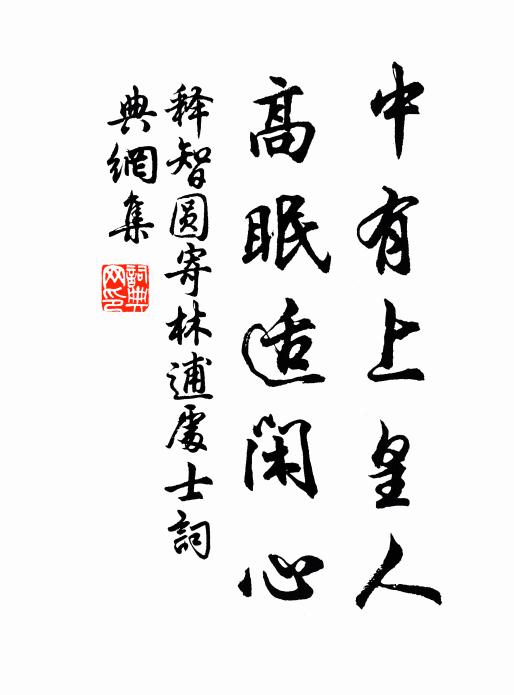 中有上皇人
高眠适闲心
释智圆寄林逋處士詞
典網集
詞典
网印